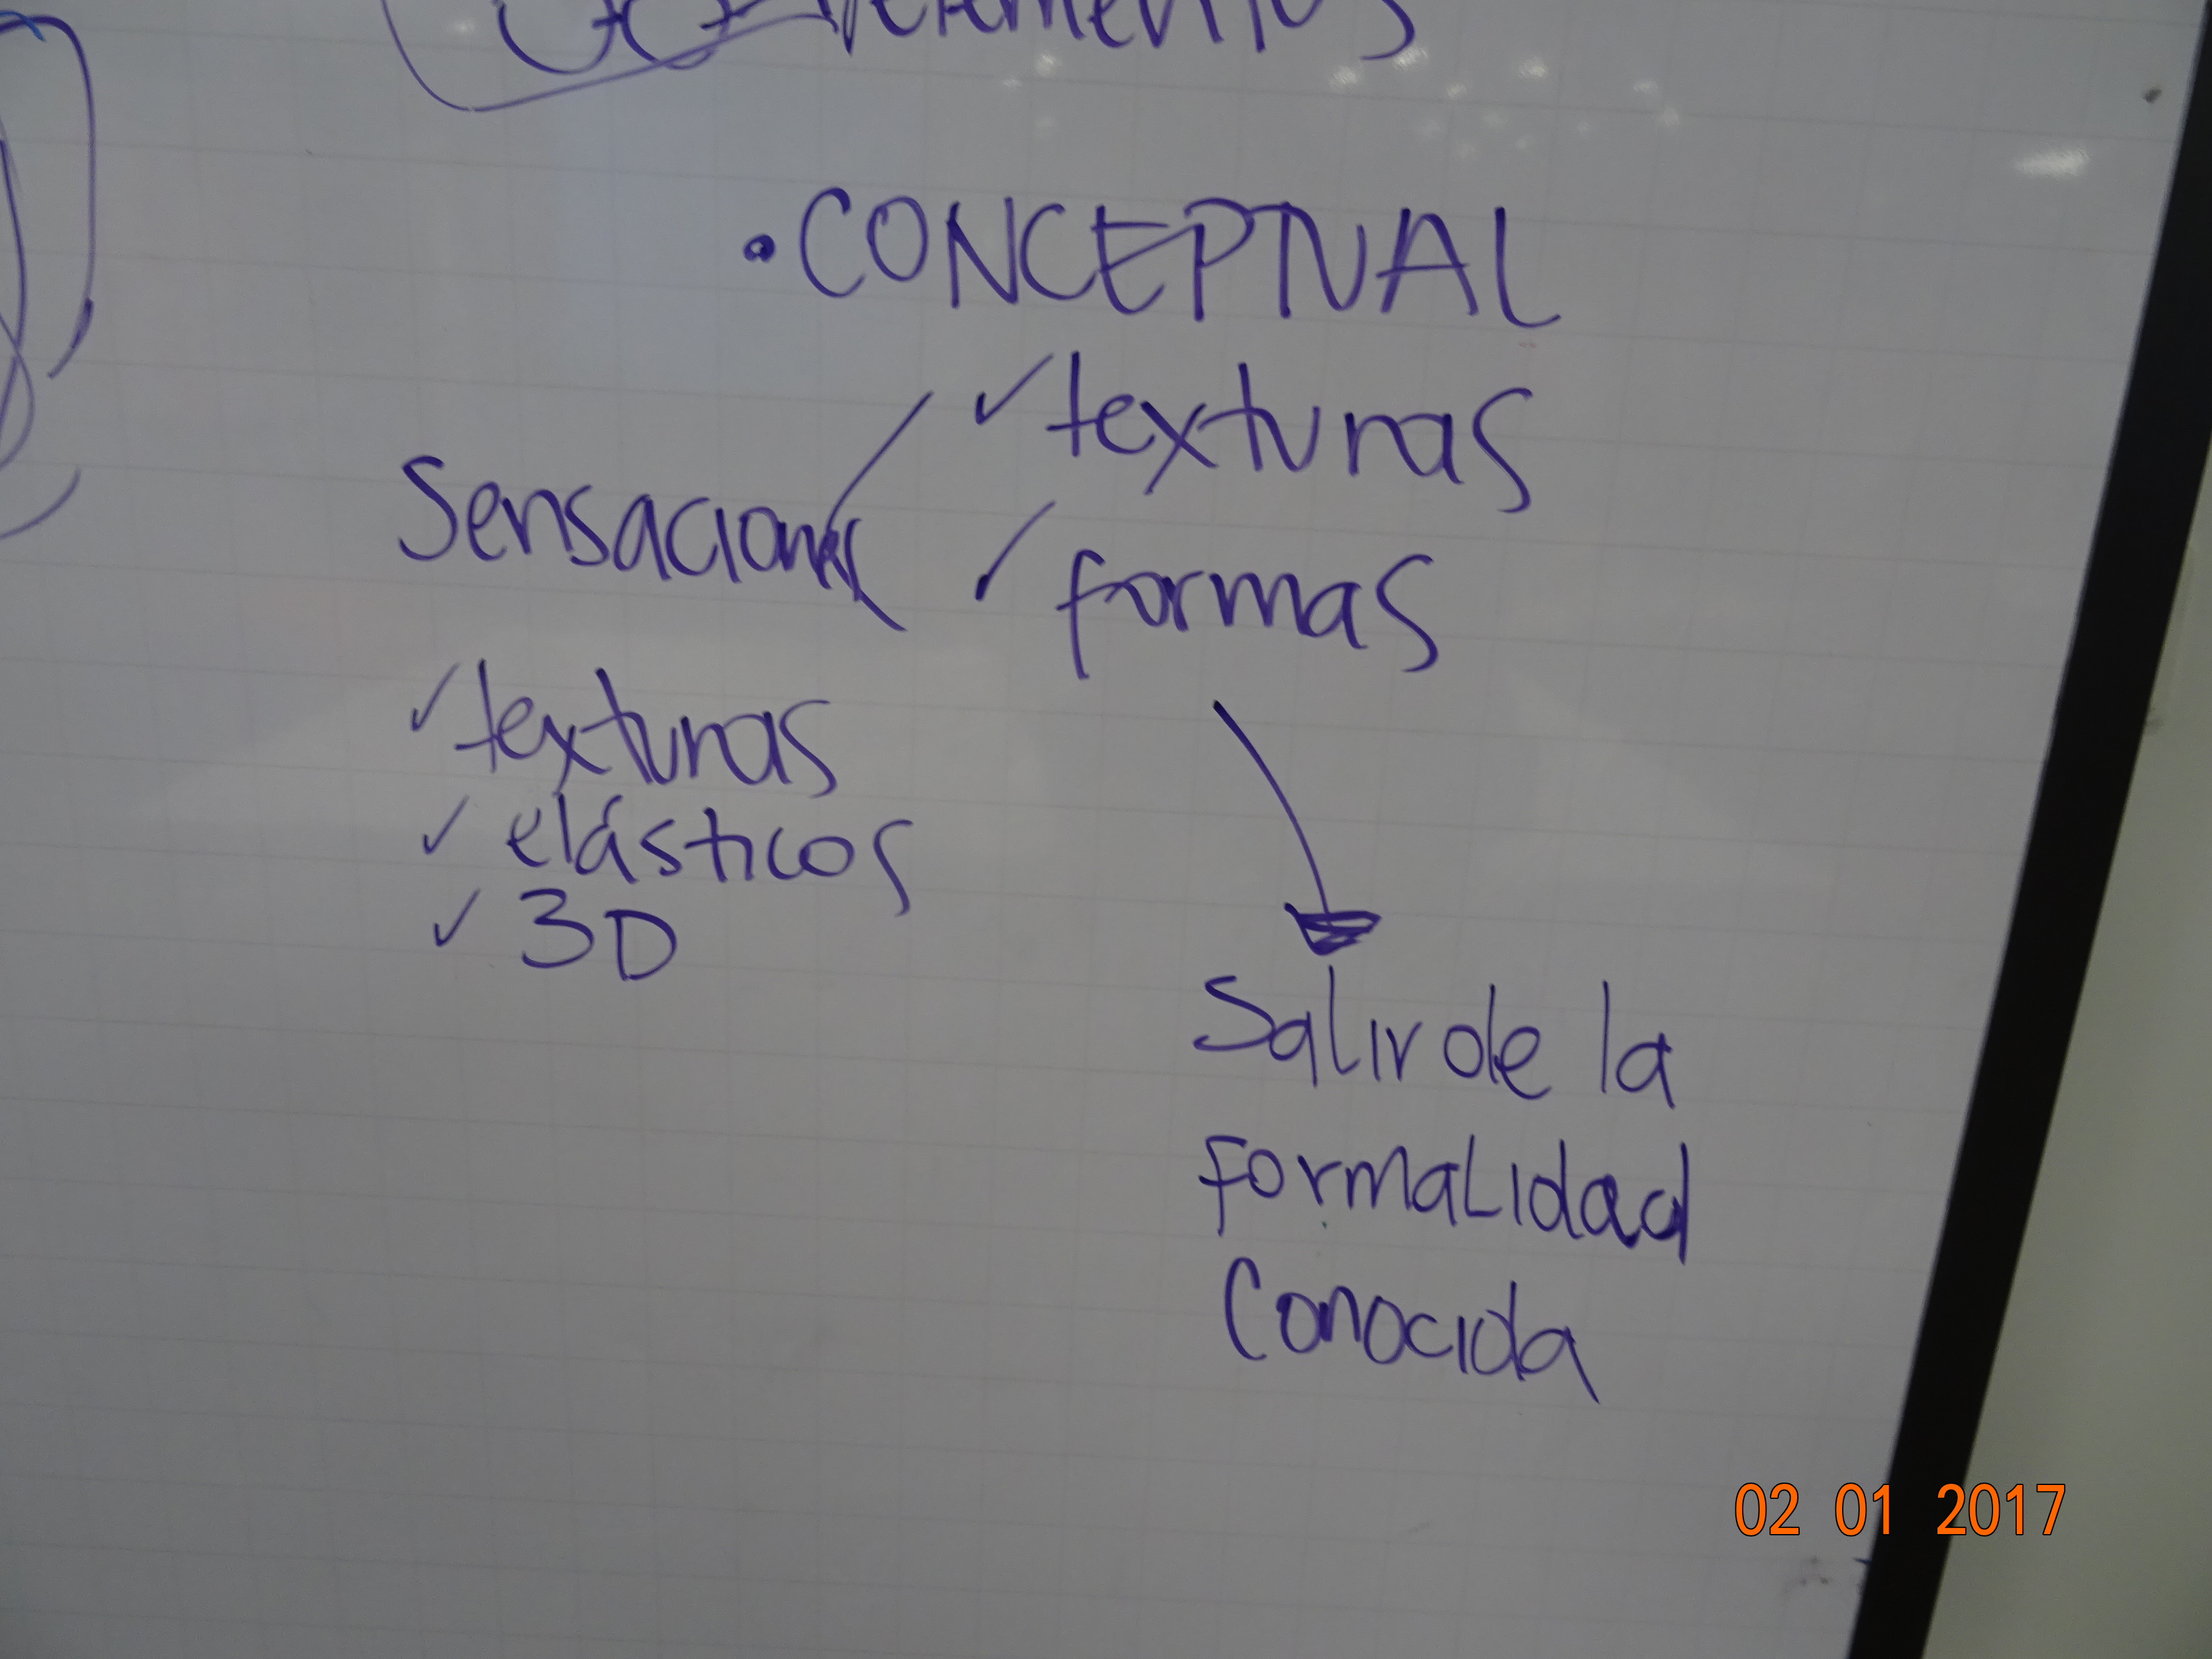 • CONCEPTUAL
✓ texturas
Sensaciones
✓ formas
✓ texturas
✓ elásticos
✓ 3D
Salir de la
formalidad
Conocida
02 01 2017